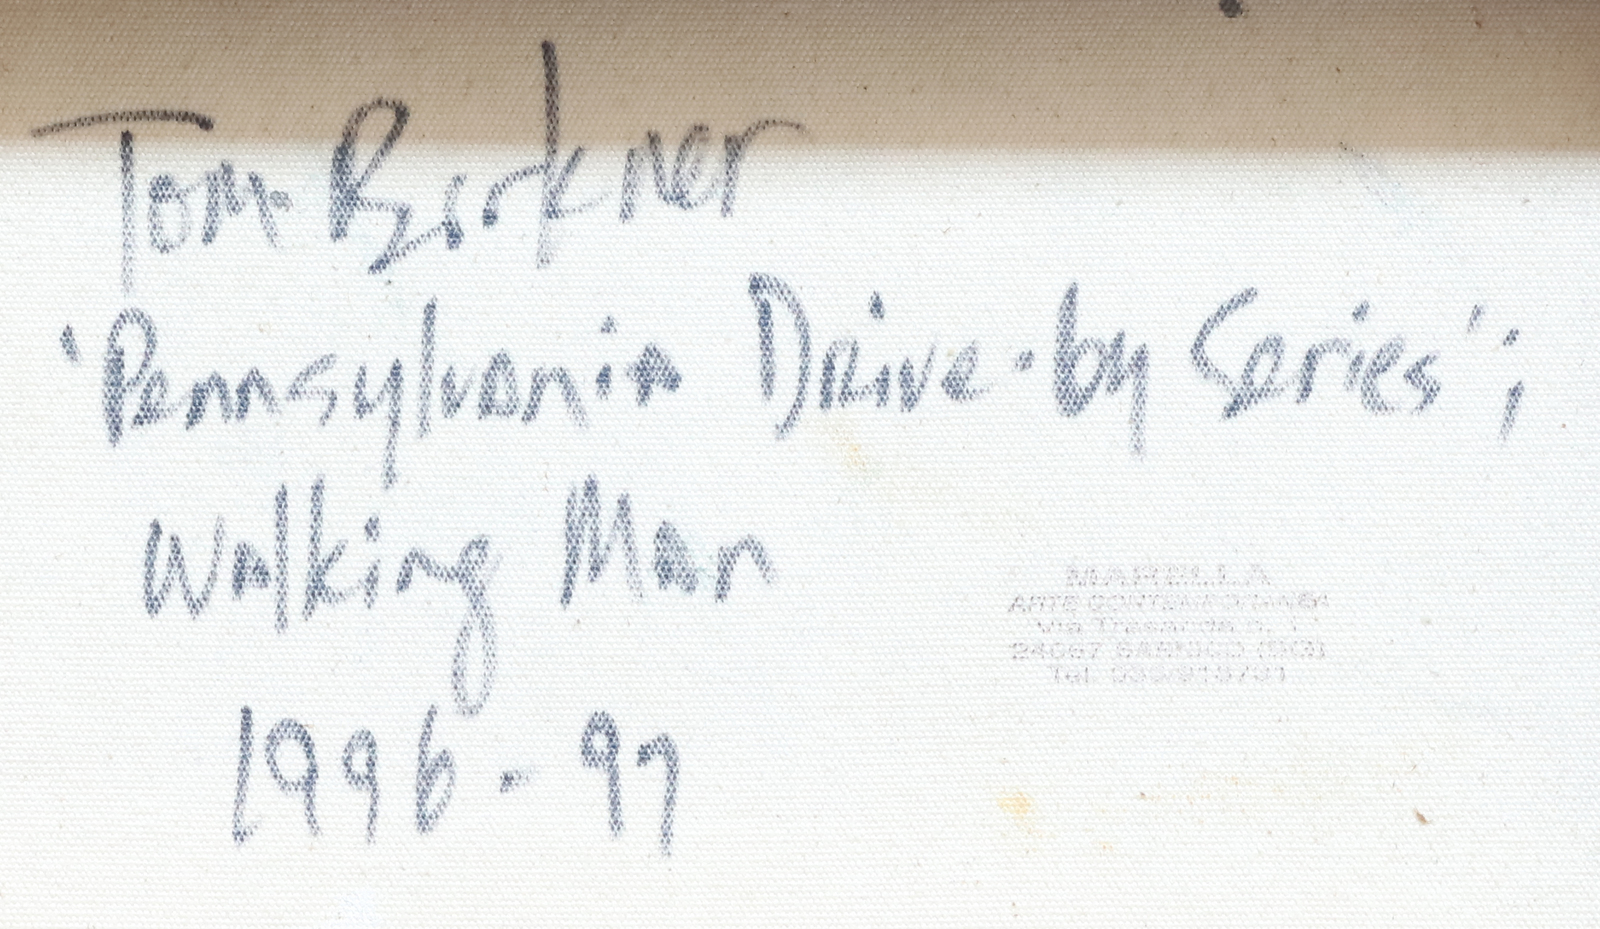 Tom Birkner
'Pennsylvania Drive-by Series';
Walking Man
1996-97
MARELLA
ARTE CONTEMPORANEA
24067 SARNICO (BG)
Tel.